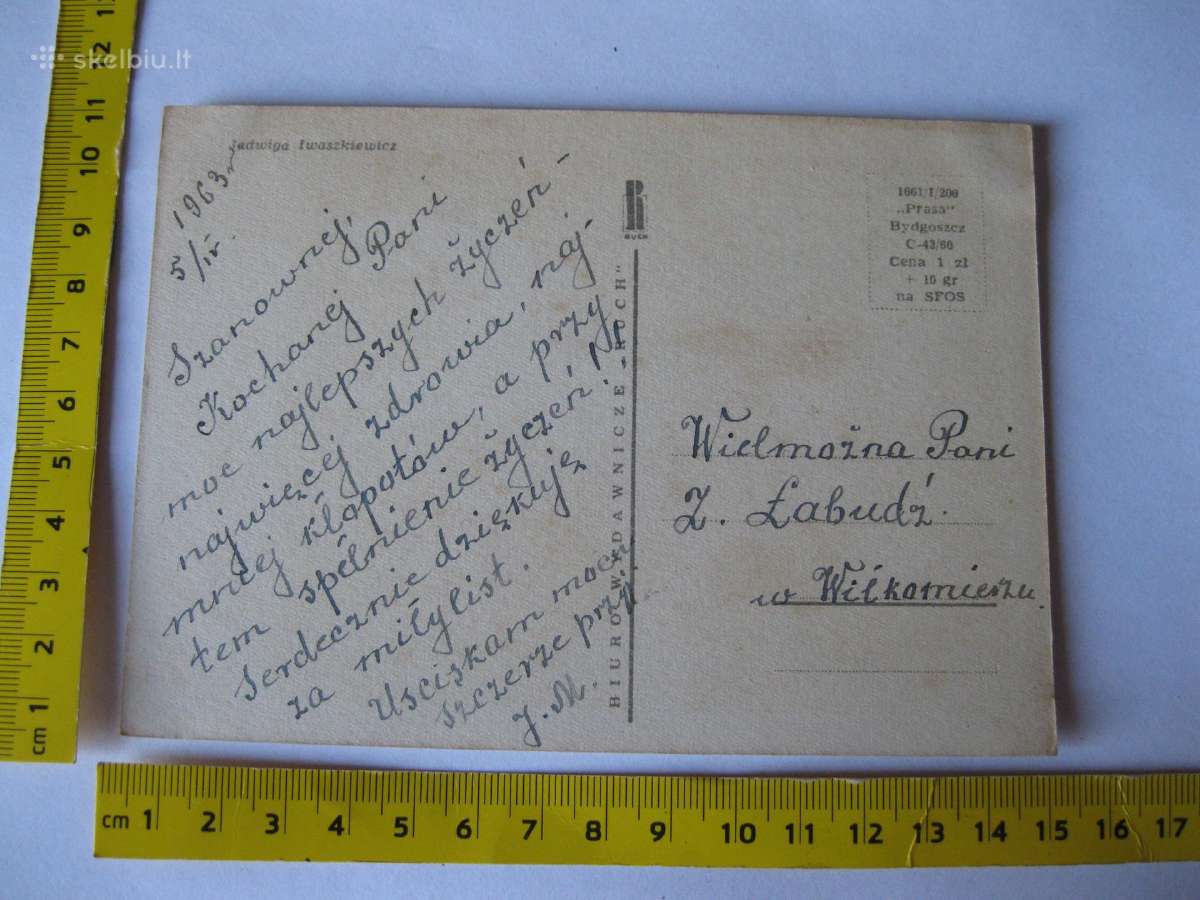 skelbiu.lt
Jadwiga Iwaszkiewicz
1963 r.
5/IV.
Szanownej,
Kochanej Pani
moc najlepszych życzeń –
najwięcej zdrowia, naj-
mniej kłopotów, a przy
tem spełnienie życzeń!!!
Serdecznie dziękuję
za miły list.
Uściskam mocn
szczerze przyj.
J. M.
RUCH
BIURO WYDAWNICZE „RUCH"
1661/I/200
„Prasa"
Bydgoszcz
C-43/60
Cena 1 zł
+ 10 gr
na SFOS
Wielmożna Pani
Z. Łabudź.
w Wiłkomierzu.
12 11 10 9 8 7 6 5 4 3 2 1 cm
cm 1 2 3 4 5 6 7 8 9 10 11 12 13 14 15 16 17